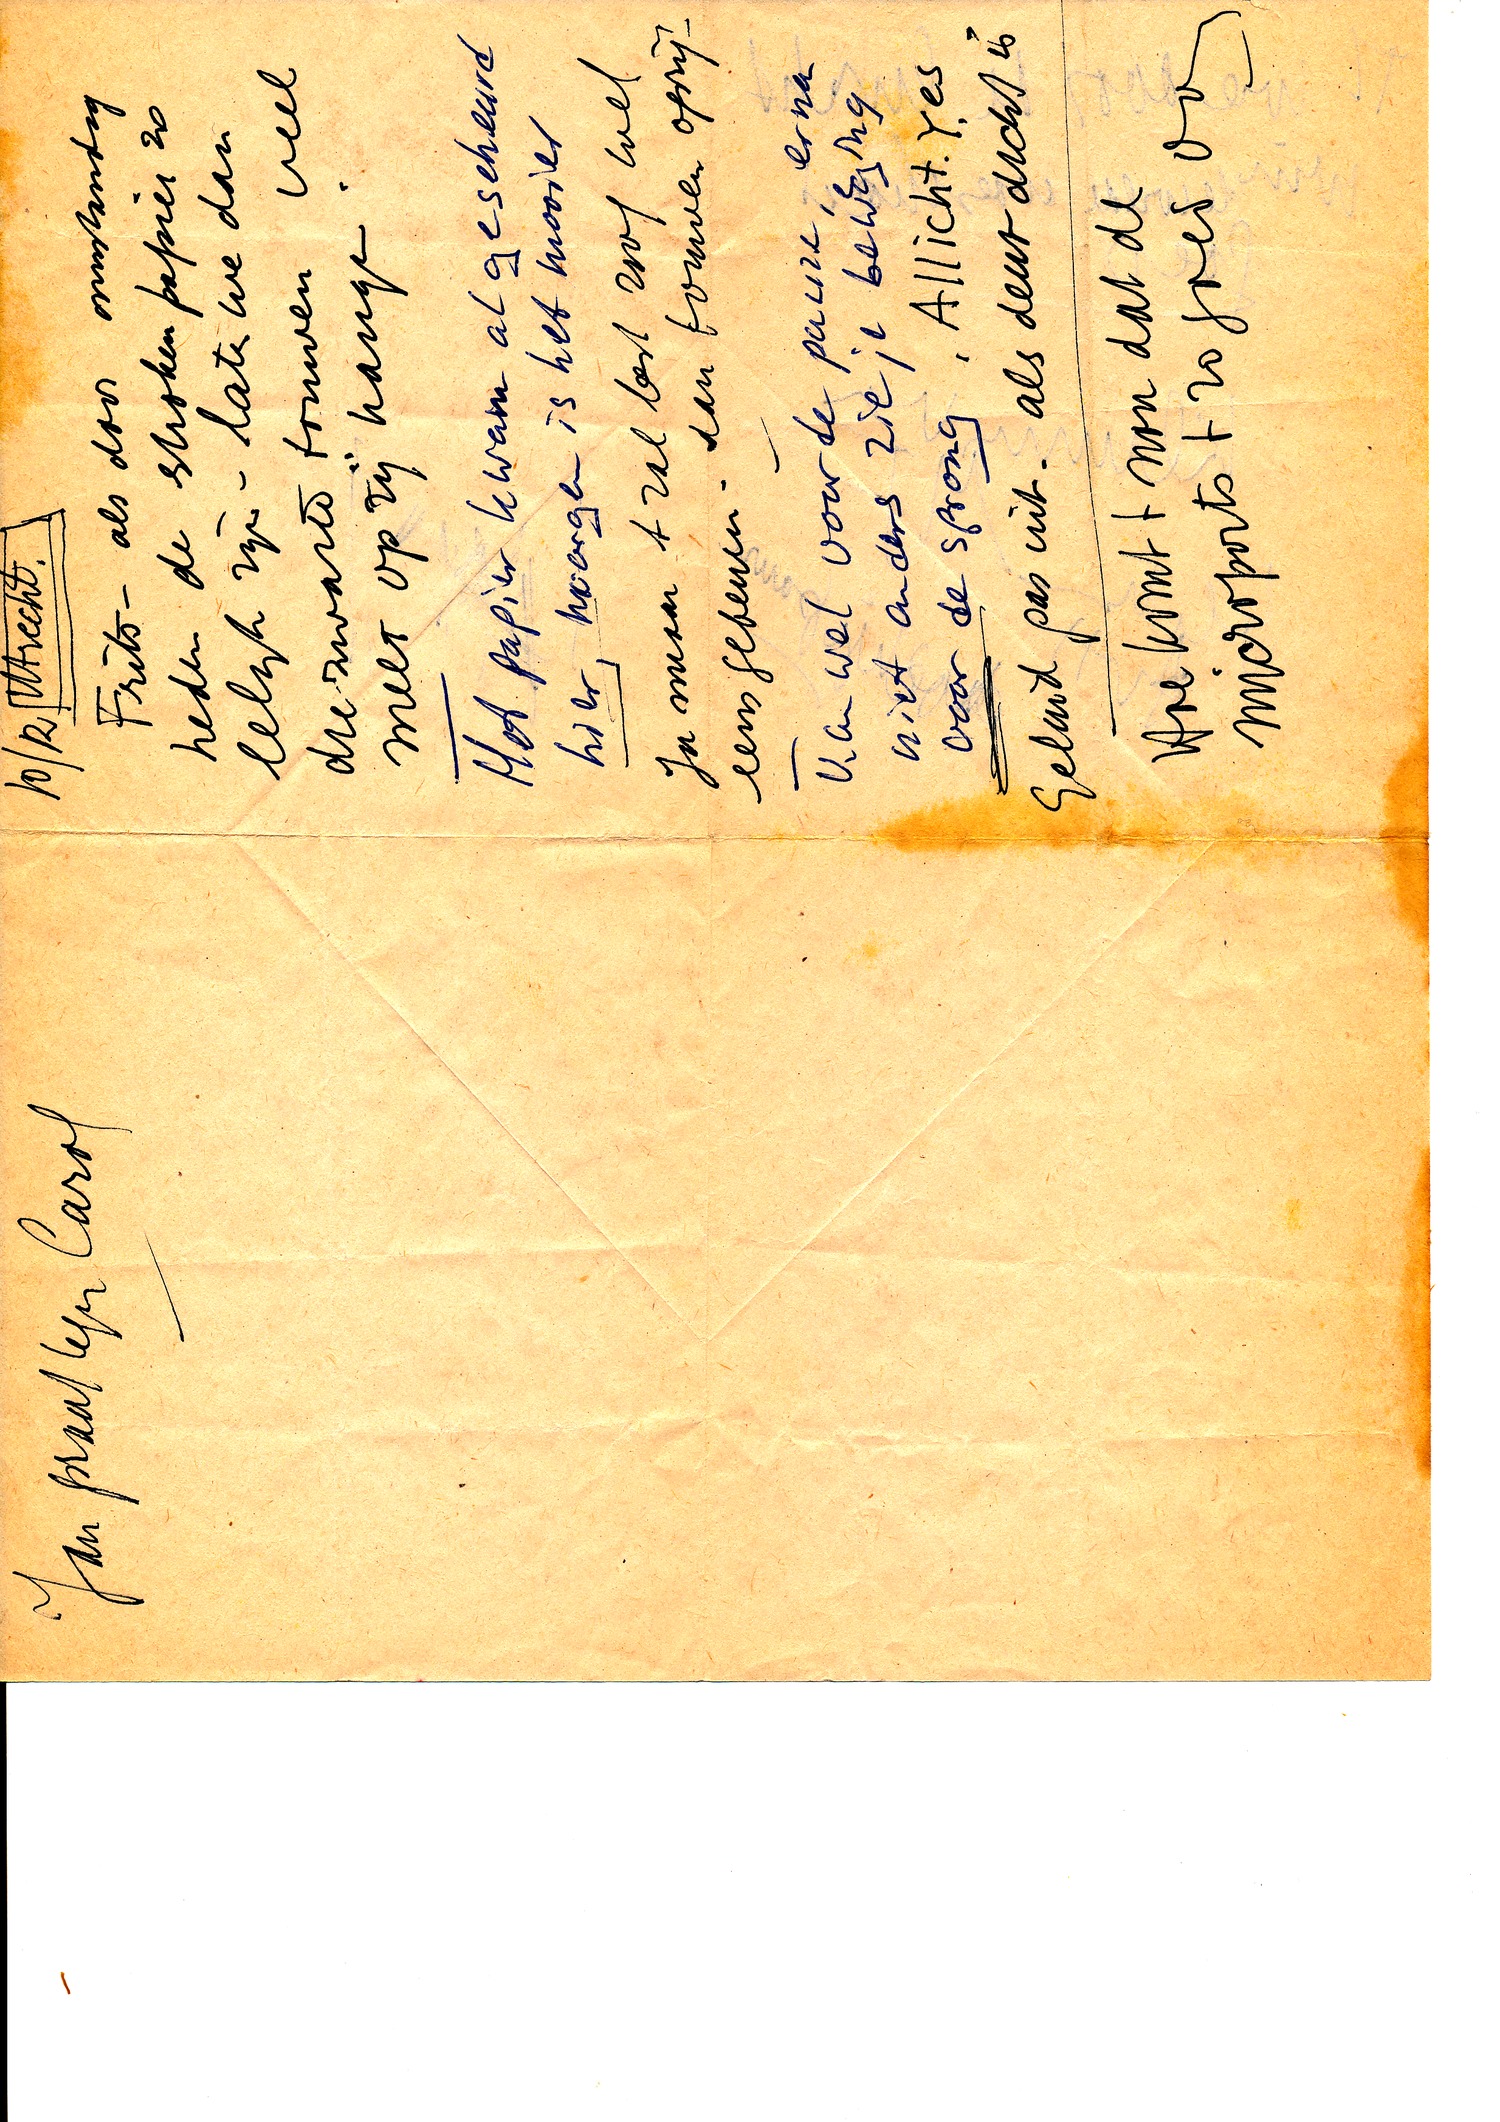 10/12 Utrecht.
Frits – als door omstandig
heden de stroken papier zo
lelijk zijn – laten we dan
de zwarte touwen veel
meer op zij hangen.
Het papier kwam al gescheurd
hier, morgen is het mooier
Ja maar t zal best zoof wel
eens gebeuren – dan touwen opzij –
Kan wel voor de pauze, erna
niet anders zie je beweging
voor de sprong. Allicht. Yes
Geluid pas uit. als deur dicht is
Hoe komt t nou dat de
microports t zo goed
Jan praat tegen Carol